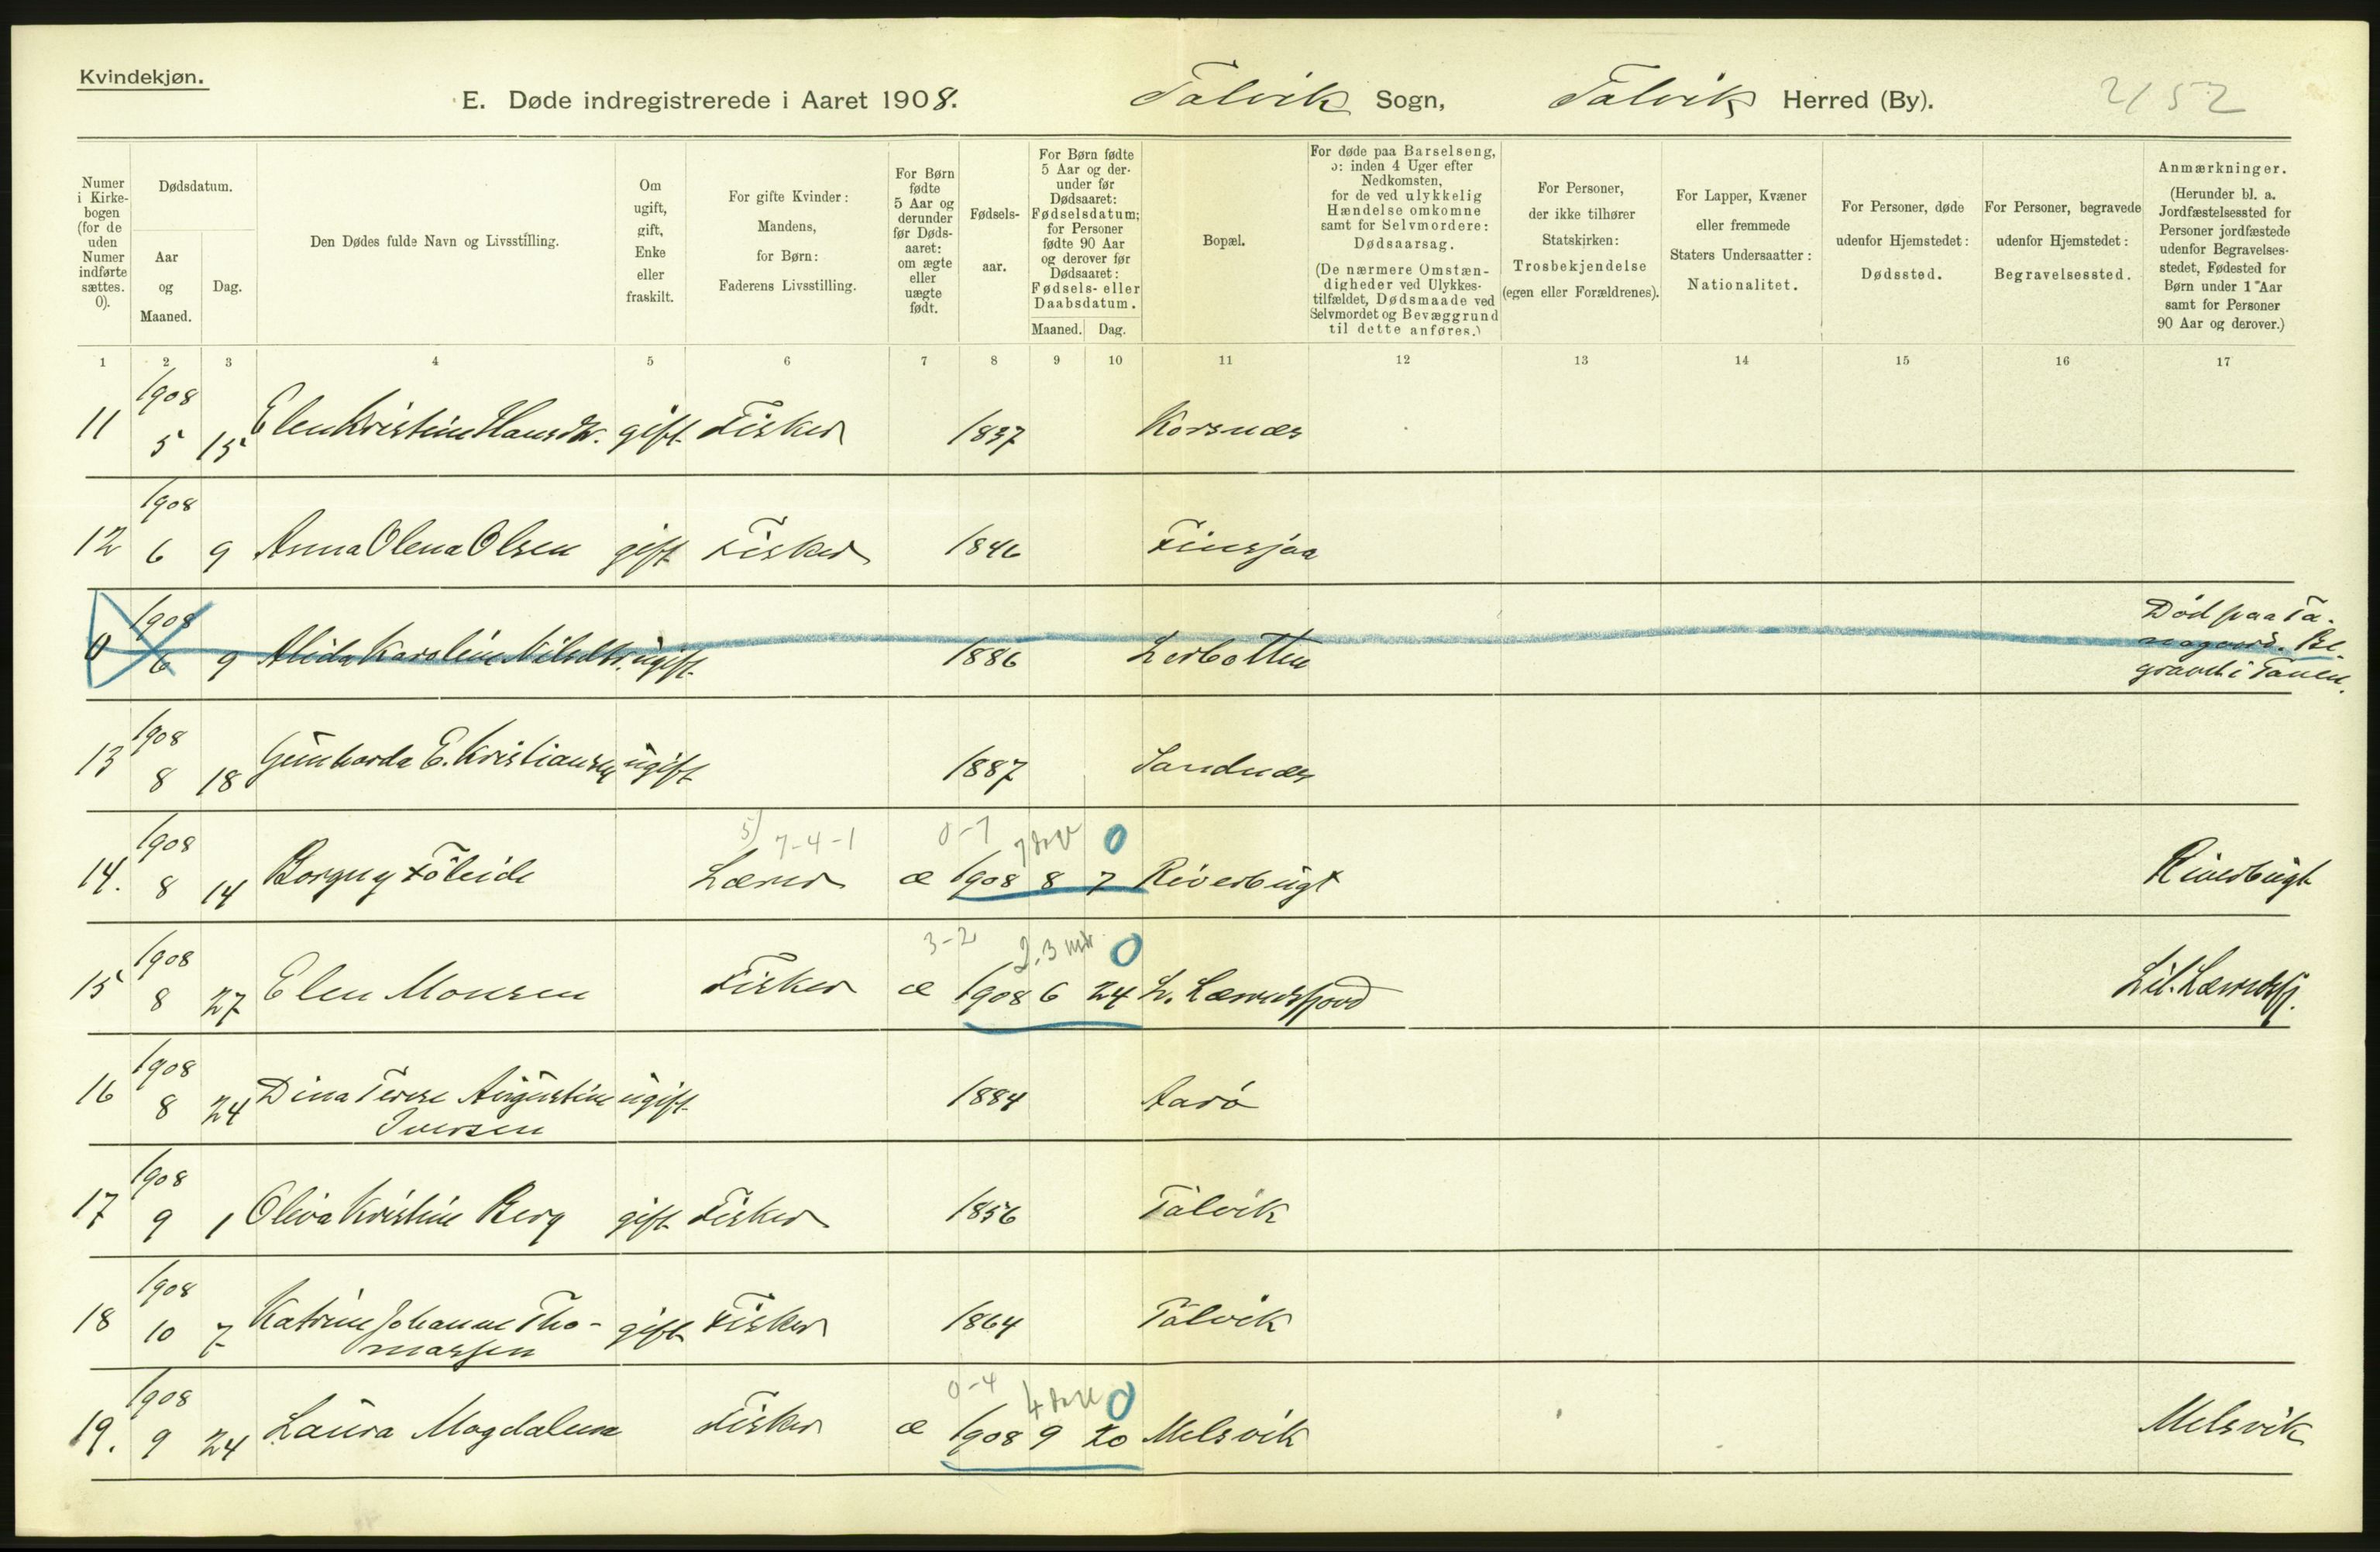 Kvindekjøn.
E. Døde indregistrerede i Aaret 1908. Talvik Sogn, Talvik Herred (By). 2/52
Numer i Kirkebogen (for de uden Numer indførte sættes. 0).
Dødsdatum.
Aar og Maaned.
Dag.
Den Dødes fulde Navn og Livsstilling.
Om ugift, gift, Enke eller fraskilt.
For gifte Kvinder: Mandens, for Børn: Faderens Livsstilling.
For Børn fødte 5 Aar og derunder før Dødsaaret: om ægte eller uægte født.
Fødselsaar.
For Børn fødte 5 Aar og derunder før Dødsaaret: Fødselsdatum; for Personer fødte 90 Aar og derover før Dødsaaret: Fødsels- eller Daabsdatum.
Maaned. Dag.
Bopæl.
For døde paa Barselseng, ɔ: inden 4 Uger efter Nedkomsten, for de ved ulykkelig Hændelse omkomne samt for Selvmordere: Dødsaarsag.
(De nærmere Omstændigheder ved Ulykkestilfældet, Dødsmaade ved Selvmordet og Bevæggrund til dette anføres.)
For Personer, der ikke tilhører Statskirken: Trosbekjendelse (egen eller Forældrenes).
For Lapper, Kvæner eller fremmede Staters Undersaatter: Nationalitet.
For Personer, døde udenfor Hjemstedet: Dødssted.
For Personer, begravede udenfor Hjemstedet: Begravelsessted.
Anmærkninger.
(Herunder bl. a. Jordfæstelsessted for Personer jordfæstede udenfor Begravelsesstedet, Fødested for Børn under 1 Aar samt for Personer 90 Aar og derover.)
1 2 3 4 5 6 7 8 9 10 11 12 13 14 15 16 17
1908
11 5 15 Elen Kristine Hansdtr. gift Fisker 1837 Korsnæs
1908
12 6 9 Anna Olena Olsen gift Fisker 1846
1908 Død paa Ta-
0 6 9 Alida Karoline Nilsdtr. ugift 1886 Lerbotten Be-
gravet i Tanen.
1908
13 8 18 E. Kristiansen ugift 1887 Sandnæs
5) 7-4-1 0-7 0
1908
14. 8 14 Borgny Lærer æ 1908 8 7 Riverbugt Riverbugt
3-2 0
1908
15 8 27 Elen Monsen Fisker æ 1908 6 24
1908
16 8 24 Dina Terese Augustine ugift 1884 Aarø
Iversen
1908
17 9 1 Oliva Kristine Berg gift Fisker 1856 Talvik
1908
18 10 7 Katrine Johanne Tho- gift Fisker 1864 Talvik
massen
0-4 0
1908
19. 9 24 Laura Magdalena Fisker æ 1908 9 20 Melsvik Melsvik